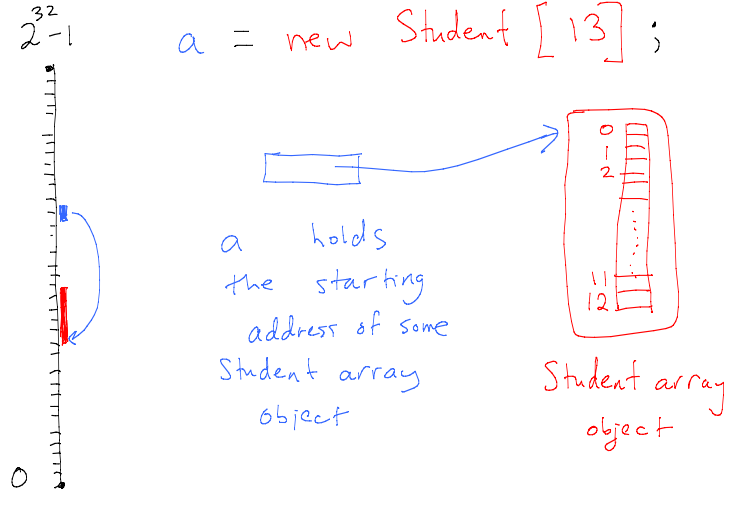 2^32-1
a = new Student [13];
0
1
2
11
12
a holds
the starting
address of some
Student array
object
Student array
object
0